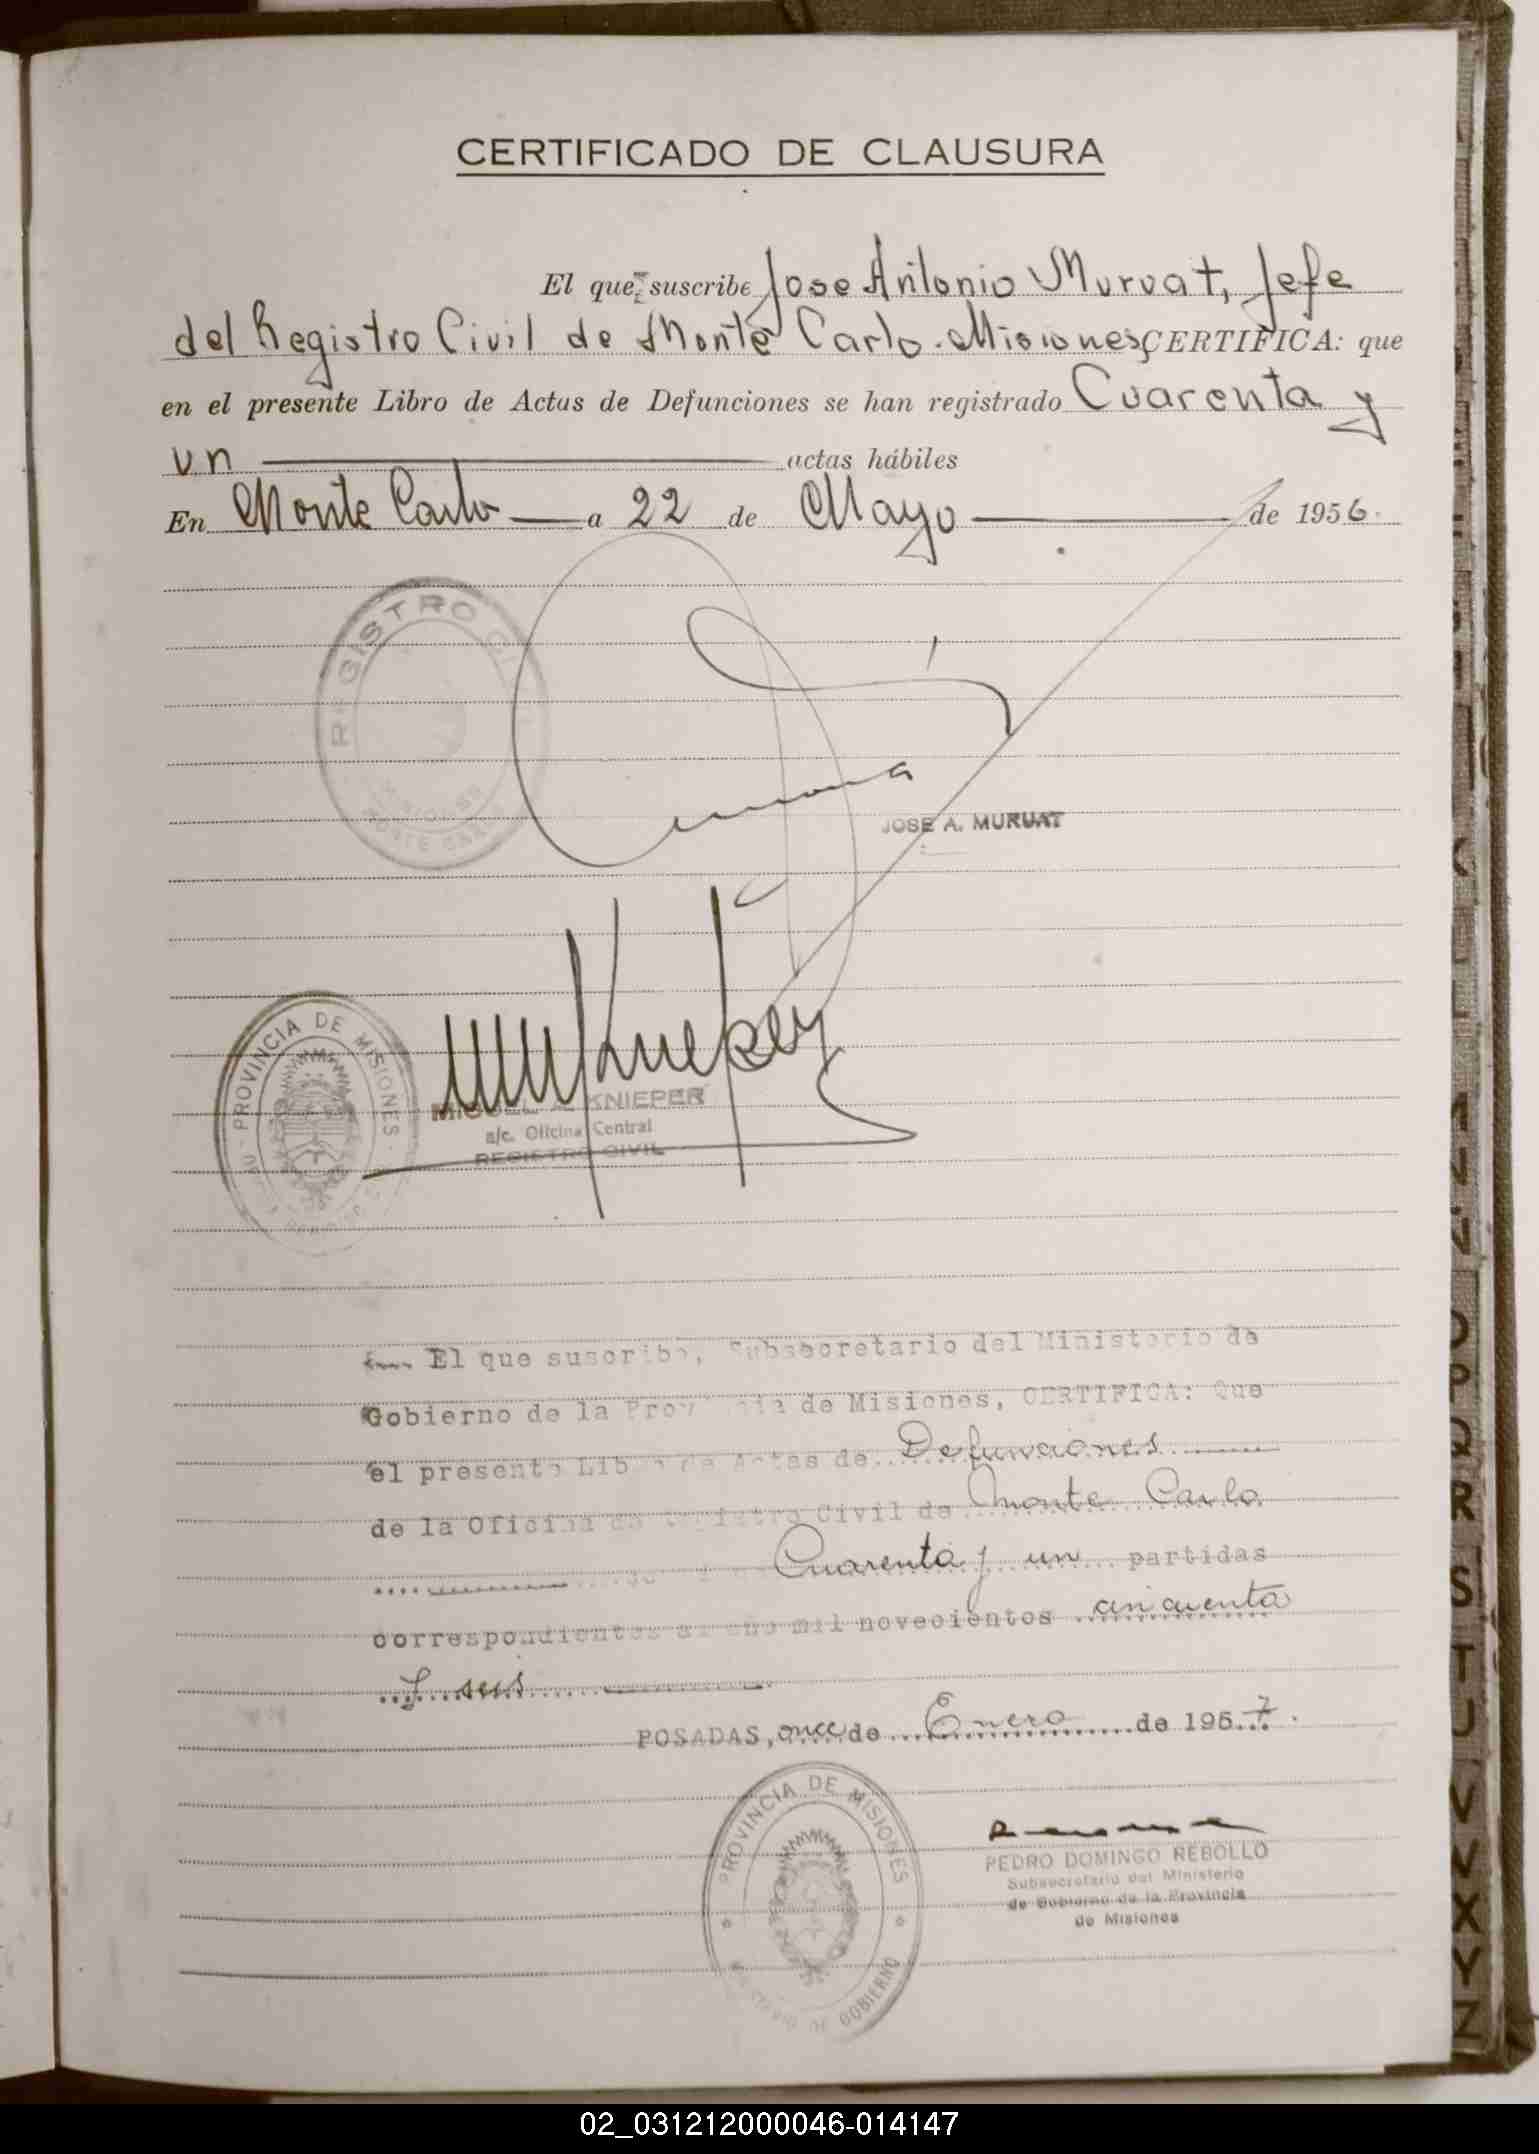 CERTIFICADO DE CLAUSURA
El que suscribe Jose Antonio Muruat, Jefe
del Registro Civil de Monte Carlo. Misiones, CERTIFICA: que
en el presente Libro de Actas de Defunciones se han registrado Cuarenta y
un actas hábiles
En Monte Carlo a 22 de Mayo de 1956.
REGISTRO CIVIL
MISIONES
MONTE CARLO
JOSE A. MURUAT
PROVINCIA DE MISIONES
MIGUEL A. KNIEPER
a/c. Oficina Central
REGISTRO CIVIL
El que suscribe, Subsecretario del Ministerio de
Gobierno de la Provincia de Misiones, CERTIFICA: Que
el presente Libro de Actas de Defunciones
de la Oficina de Registro Civil de Monte Carlo
Cuarenta y un partidas
correspondientes al año mil novecientos cincuenta
y seis
POSADAS, once de Enero de 1957.
PROVINCIA DE MISIONES
GOBIERNO
PEDRO DOMINGO REBOLLO
Subsecretario del Ministerio
de Gobierno de la Provincia
de Misiones
O
P
Q
R
S
T
U
V
X
Y
Z
02_031212000046-014147